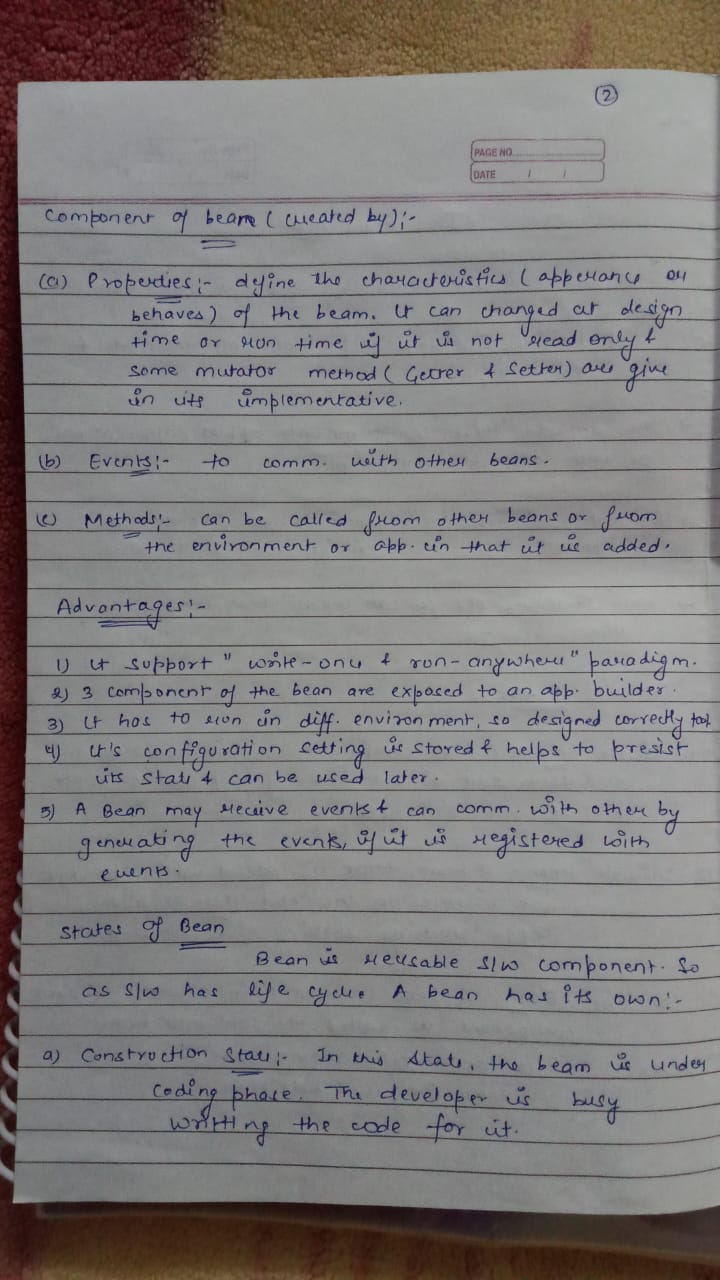 2
PAGE NO.
DATE / /
Component of beam (created by):-
(a) Properties:- define the characteristics (apperance or
behaves) of the beam. It can changed at design
time or run time if it is not read only &
some mutator method (Getter & Setter) are give
in its implementative.
(b) Events:- to comm. with other beans.
(c) Methods:- can be called from other beans or from
the environment or app. in that it is added.
Advantages:-
1) It support "write-once & run-anywhere" paradigm.
2) 3 component of the bean are exposed to an app. builder.
3) It has to run in diff. environment, so designed correctly too.
4) It's configuration setting is stored & helps to presist
its state & can be used later.
5) A Bean may receive events & can comm. with other by
generating the events, if it is registered with
events.
States of Bean
Bean is reusable s/w component. So
as s/w has life cycle. A bean has its own:-
a) Construction State:- In this state, the beam is under
coding phase. The developer is busy
writting the code for it.